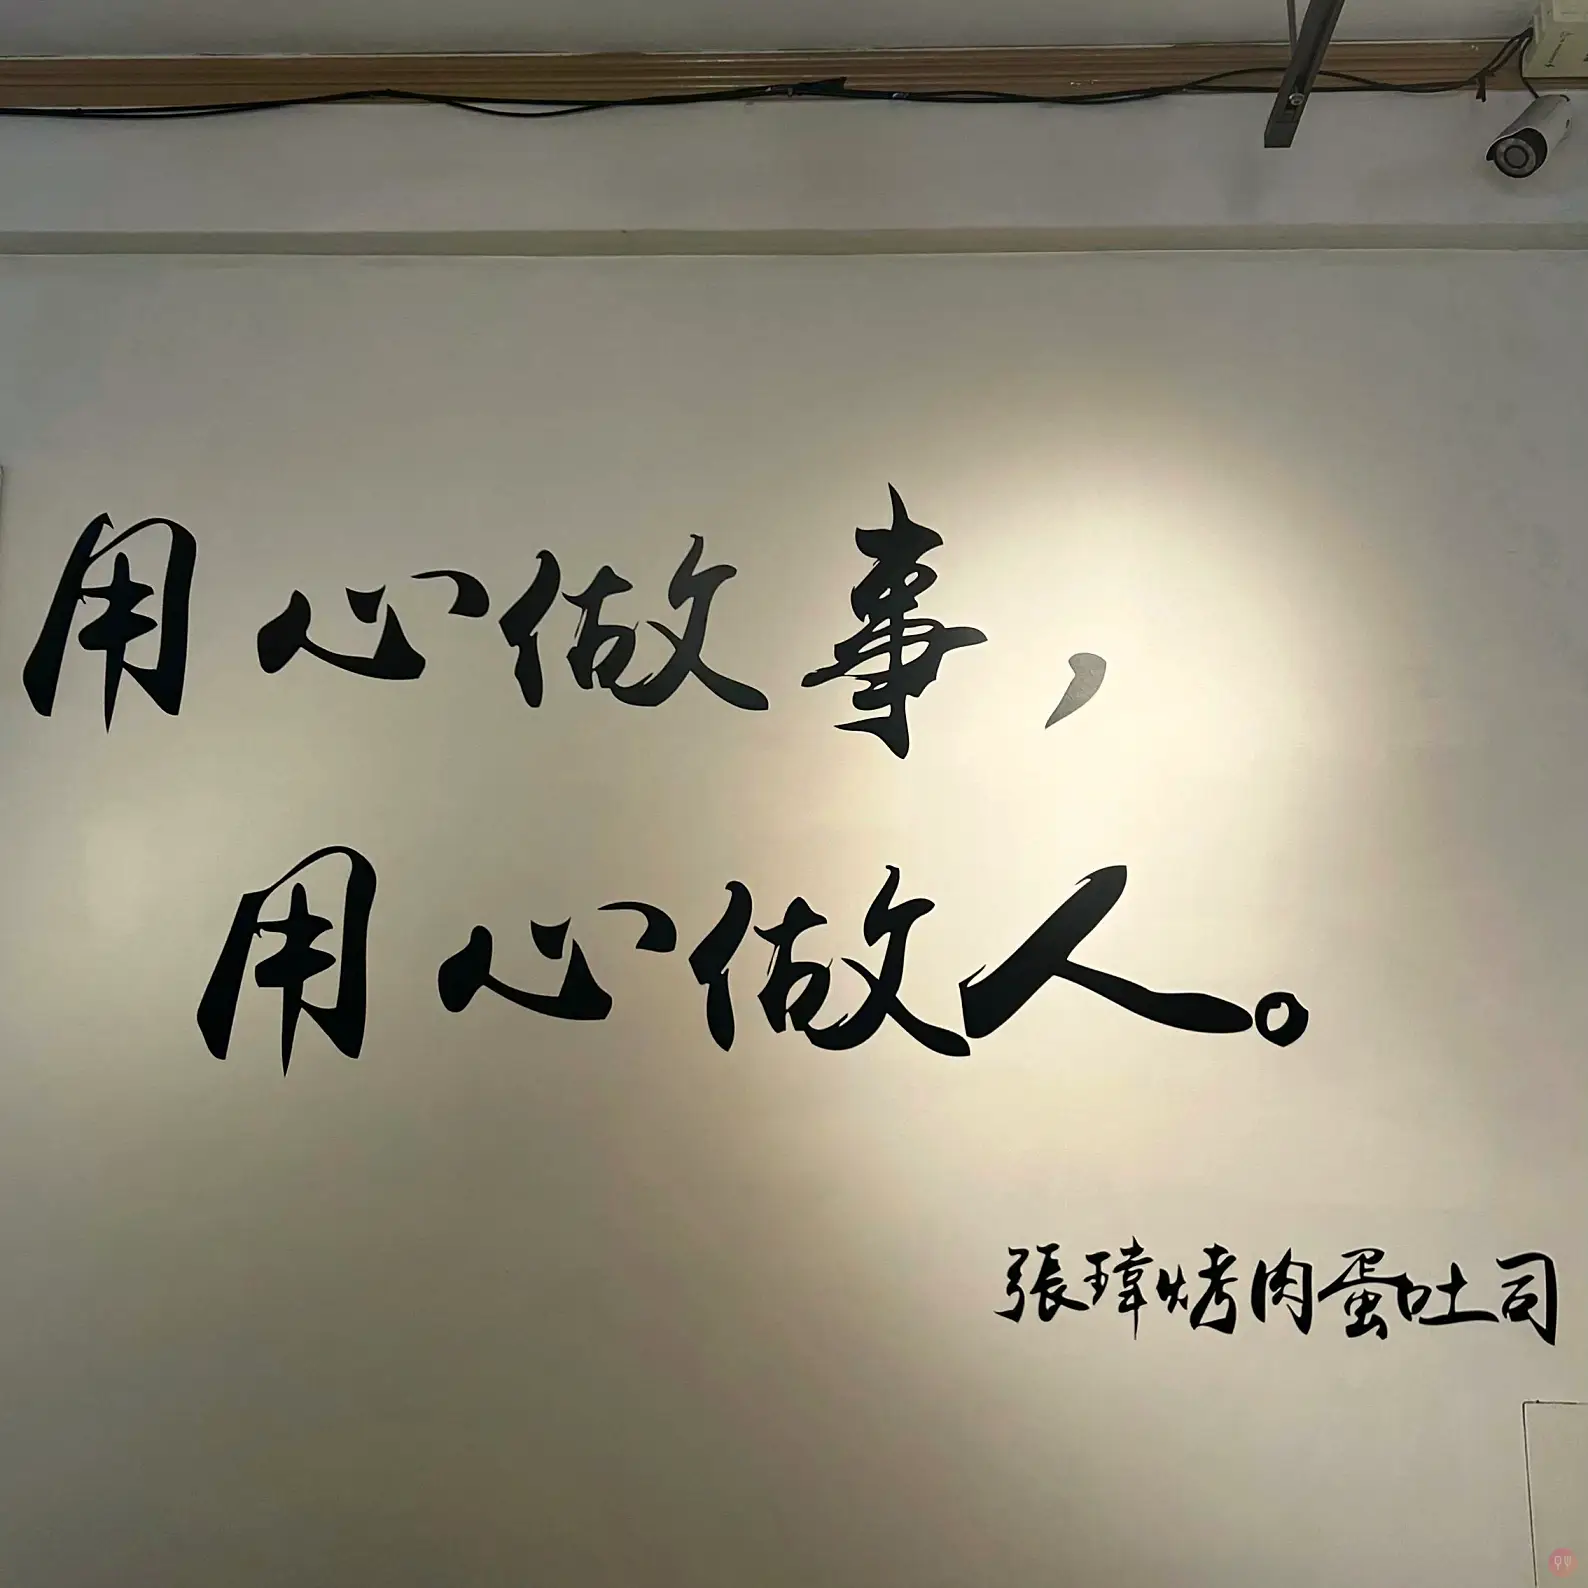 用心做事，
用心做人。
張瑋烤肉蛋吐司